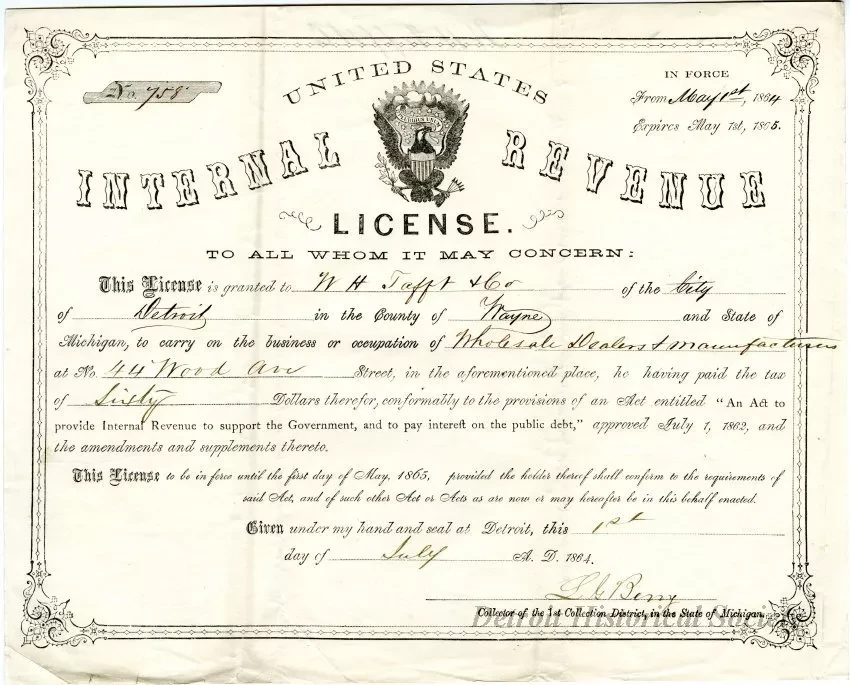 No. 758
UNITED STATES
IN FORCE
From May 1st, 1864
Expires May 1st, 1865.
INTERNAL REVENUE
LICENSE.
TO ALL WHOM IT MAY CONCERN:
This License is granted to W H Tafft & Co of the City
of Detroit in the County of Wayne and State of
Michigan, to carry on the business or occupation of Wholesale Dealers & Manufacturers
at No. 44 Wood Ave Street, in the aforementioned place, he having paid the tax
of Sixty Dollars therefor, conformably to the provisions of an Act entitled "An Act to
provide Internal Revenue to support the Government, and to pay interest on the public debt," approved July 1, 1862, and
the amendments and supplements thereto.
This License to be in force until the first day of May, 1865, provided the holder thereof shall conform to the requirements of
said Act, and of such other Act or Acts as are now or may hereafter be in this behalf enacted.
Given under my hand and seal at Detroit, this 1st
day of July A. D. 1864.
L G Berry
Collector of the 1st Collection District, in the State of Michigan.
Detroit Historical Society